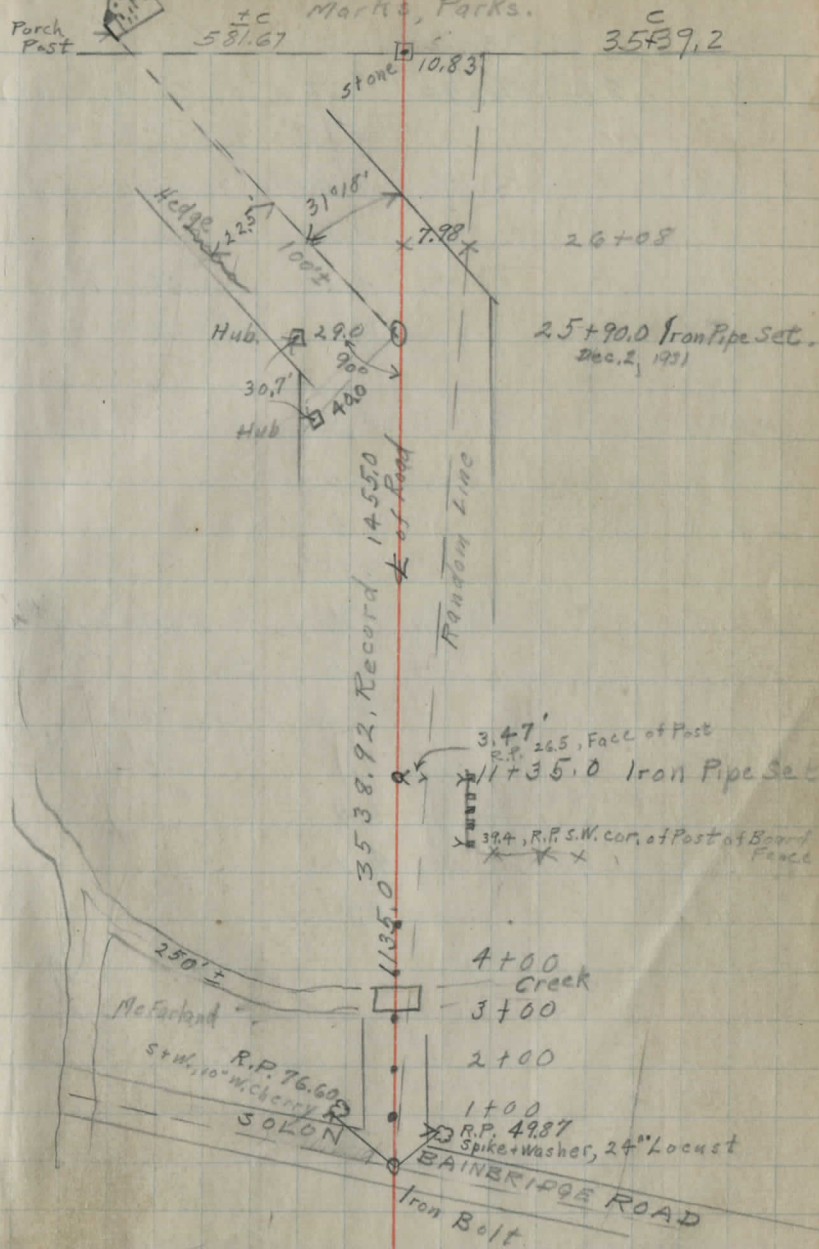 Marks, Parks.
Porch
Post
± c
581.67
c
35+39.2
Stone
10.83
31°18'
Hedge
22.5'
100'±
7.98
26+08
Hub.
29.0
90°
25+90.0 Iron Pipe Set.
Dec. 2, 1931
30.7'
40.0
Hub
3538.92, Record
1455.0
℄ of Road
Random Line
3.47'
R.P. 26.5, Face of Post
11+35.0 Iron Pipe Set
39.4, R.P. S.W. cor. of Post of Board
Fence
1135.0
250'±
4+00
Creek
3+00
McFarland
2+00
R.P. 76.60
S+W., 10" W. Cherry
1+00
R.P. 49.87
Spike+Washer, 24" Locust
SOLON
BAINBRIDGE ROAD
Iron Bolt